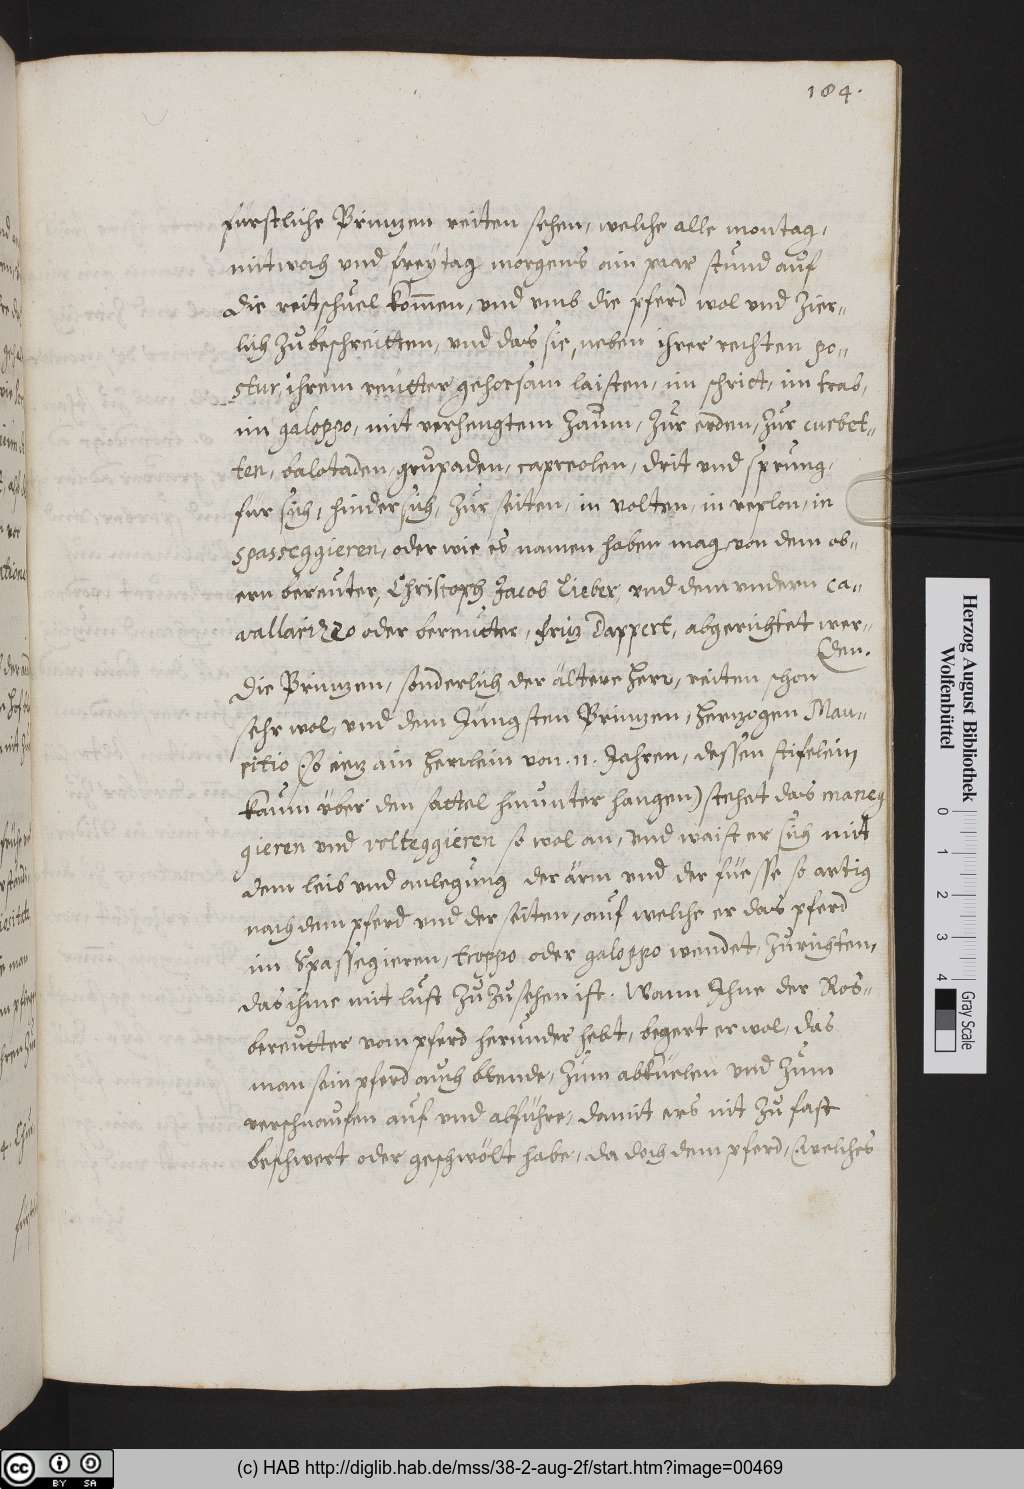 184.
fürstliche Printzen reiten sehen, welche alle montag,
mitwoch und freÿtag morgens ain paar stund auf
die reitschuel kom̅en, und umb die pferd wol und zier-
lich zu beschreitten, und das sie, neben ihrer rechten po-
stur, ihrem reutter gehorsam laisten, im schrict, im trab,
im galoppo, mit verhengtem zaum, zur erden, zur curbet-
ten, balotaden, grupaden, capreolen, drit und sprung,
für sich, hinder sich, zur seiten, in volten, in replon, in
spasseggieren, oder wie es namen haben mag, von dem ob-
ern bereuter, Christoph Jacob Lieber, und dem undern ca-
vallarizzo oder bereutter, Fritz Dappert, abgerichtet wer-
den.
Die Printzen, sonderlich der ältere Herr, reiten schon
sehr wol, und dem Jüngsten Printzen, Hertzogen Mau-
ritio (So ietz ain Herrlein von .11. Jahren, dessen stifelein
kaum über den sattel hinunter hangen) stehet das maneg
gieren und volteggieren so wol an, und waist er sich mit
dem leib und anlegung der ärm und der füesse so artig
nach dem pferd und der seiten, auf welche er das pferd
im Spassegieren, troppo oder galoppo wendet, zurichten,
das ihme mit lust zuzusehen ist. Wann Ihne der Ros-
bereutter vom pferd herunder hebt, begert er wol, das
man sein pferd auch blende, zum abkuelen und zum
verschnaufen auf und abführe, damit ers nit zu fast
beschwert oder geschwölt habe, da doch dem pferd, (welches
Herzog August Bibliothek
Wolfenbüttel
0 1 2 3 4
Gray Scale
cc BY SA
(c) HAB http://diglib.hab.de/mss/38-2-aug-2f/start.htm?image=00469